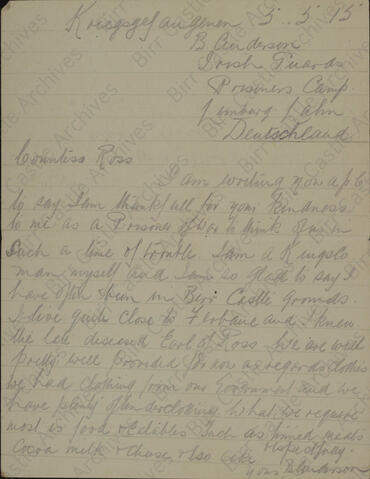 Kriegsgefangenen 5.5.15
B. Anderson
Irish Guards
Prisoners Camp.
Limburg Lahn
Deutschland
Countess Ross
I am writing you a p.c.
to say I am thinkfull for your kindness
to me as a Prisoner of War to think of us in
Such a time of trouble. I am a Kings Co
man myself and I am so glad to say I
have often been in Birr Castle Grounds.
I live quite close to Ferbane and I knew
the late diseased Earl of Ross. We are well
pretty well provided for now as regards clothes
we had clothing from our Government and we
have plenty of underclothing what we require
most is food & edibles Such as tinned meats
Cocoa milk & cheese & so like respectfully.
yours B. Anderson
Birr Castle Archives